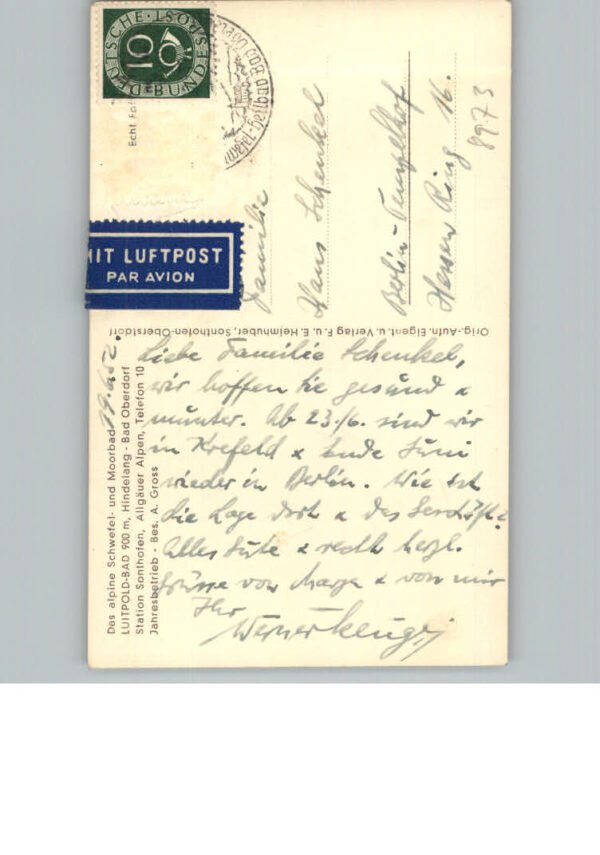 DEUTSCHE BUNDESPOST
10
Echt Fot
MIT LUFTPOST
PAR AVION
Familie
Hans Schenkel
Berlin-Tempelhof
Hessen Ring 16.
8973
Orig.-Aufn. Eigent. u. Verlag F. u. E. Heimhuber, Sonthofen-Oberstdorf
Das alpine Schwefel- und Moorbad
LUITPOLD-BAD 900 m, Hindelang - Bad Oberdorf
Station Sonthofen, Allgäuer Alpen, Telefon 10
Jahresbetrieb - Bes. A. Gross
19.6.52.
Liebe Familie Schenkel,
wir hoffen Sie gesund &
munter. Ab 23./6. sind wir
in Krefeld & Ende Juni
wieder in Berlin. Wie ist
die Lage dort & das Geschäft?
Alles Gute & recht herzl.
Grüsse von Marga & von mir
Ihr
Werner